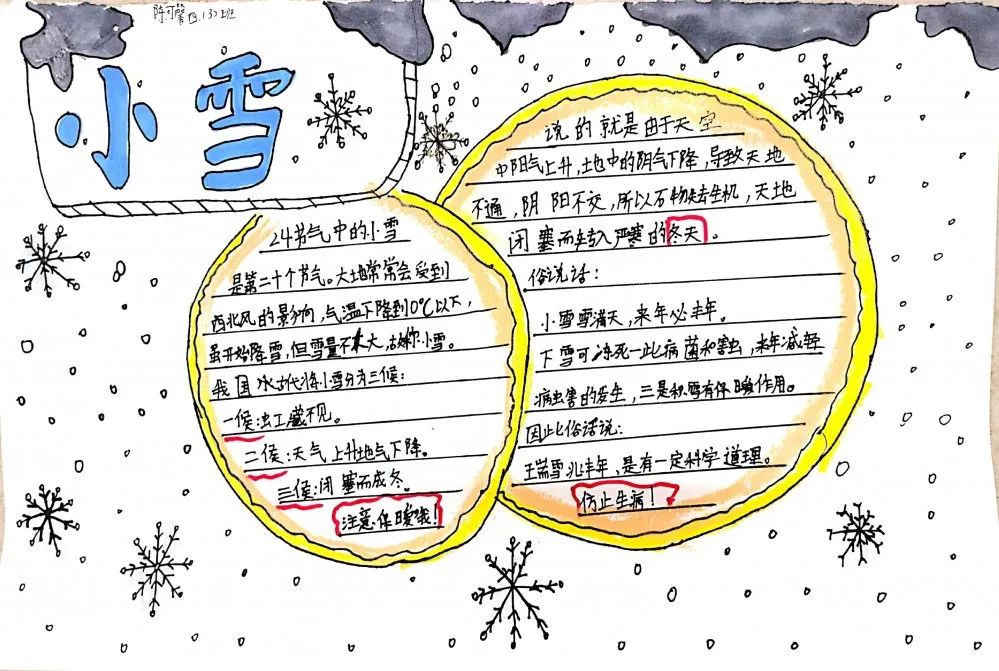 陈可馨 四.13)班
小雪
24节气中的小雪
是第二十个节气。大地常常会受到
西北风的影响,气温下降到0℃以下,
虽开始降雪,但雪量不大,故称小雪。
我国古代将小雪分为三候:
一候:虫工藏不见。
二候:天气上升地气下降。
三候:闭塞而成冬。
注意保暖哦!
说的就是由于天空
中阳气上升,地中的阴气下降,导致天地
不通,阴阳不交,所以万物失去生机,天地
闭塞而转入严寒的冬天。
俗说话:
小雪雪满天,来年必丰年。
下雪可冻死一些病菌和害虫,来年减轻
病虫害的发生,三是积雪有保暖作用。
因此俗话说:
瑞雪兆丰年,是有一定科学道理。
仿止生病!